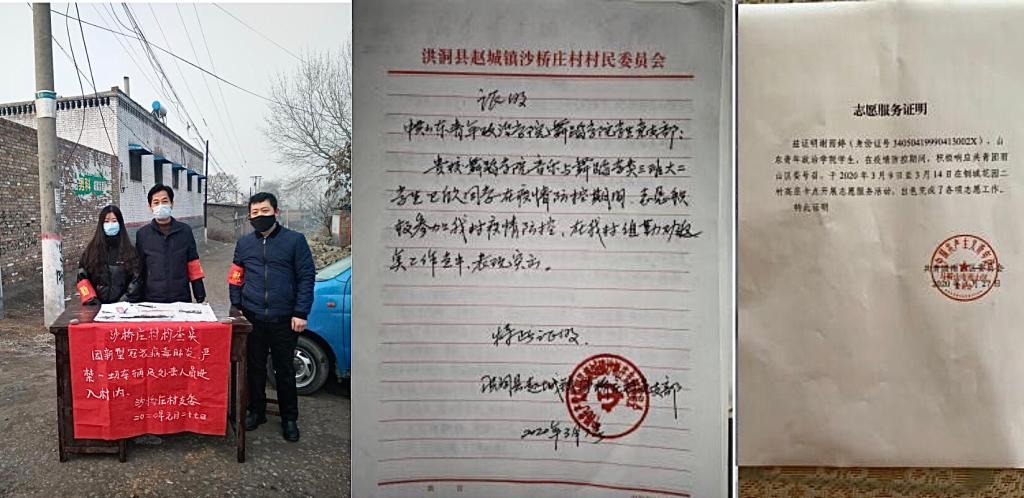 男科
沙桥庄村检查点
因新型冠状病毒肺炎,严
禁一切车辆及外来人员进
入村内.
沙桥庄村支委
洪洞县赵城镇沙桥庄村村民委员会
证明
中共山东青年政治学院舞蹈学院学生党支部:
贵校舞蹈学院音乐与舞蹈学类三班大二
学生
同学在疫情防控期间
志愿积
极参加我村疫情防控,在我村组勤
表现突出。
特此证明.
洪洞县赵城镇沙桥庄村支部
2020年3月
志愿服务证明
兹证明谢雨婷(身份证号34050419990413002X),山
东青年政治学院学生,在疫情防控期间,积极响应共青团雨
山区委号召,于2020年3月9日至3月14日在钢城花园二
村高层卡点开展志愿服务活动,出色完成了各项志愿工作。
特此证明
共青团雨山区委员会
2020年 月27日